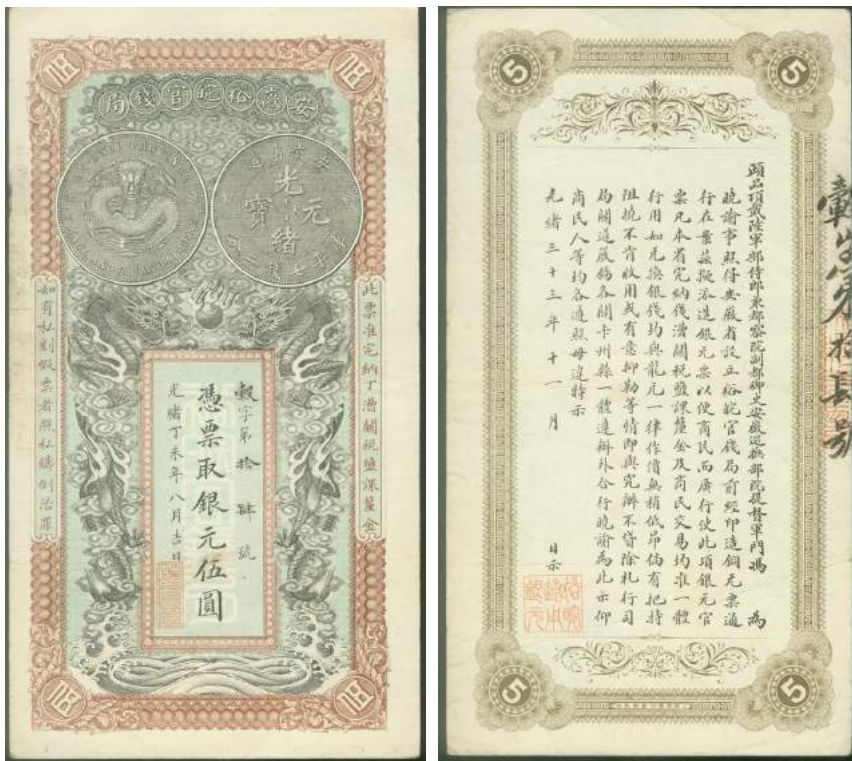 安徽裕皖官錢局
光緒元寶
此票准完納丁漕關稅鹽課釐金
如有私刻假票者照私鑄例治罪
穀字第拾肆號
憑票取銀元伍圓
光緒丁未年八月吉日
5
5
頭品頂戴陸軍部侍郎兼都察院副都御史安徽巡撫部院提督軍門馮 為
曉諭事照得安徽省設立裕皖官錢局前經印造銅元票通
行在案茲擬添造銀元票以便商民而廣行使此項銀元官
票凡本省完納錢漕關稅鹽課釐金及商民交易均准一體
行用如兌換銀錢均與龍元一律作價無稍低昂倘有把持
阻撓不肯收用或有意抑勒等情即與究辦不貸除札行司
局關道嚴飭各關卡州縣一體遵辦外合行曉諭為此示仰
商民人等均各遵照毋違特示
光緒三十三年十一月 日示
5
5